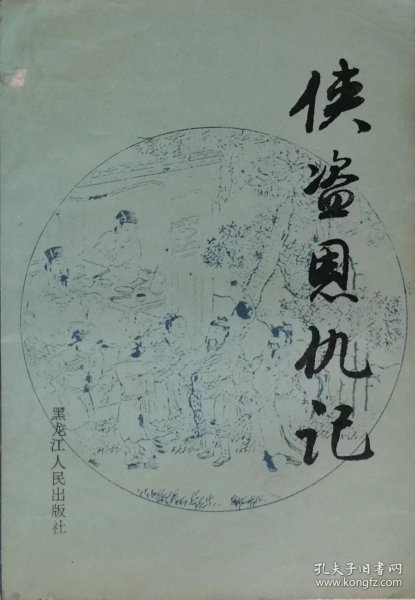 侠盗恩仇记
黑龙江人民出版社
孔夫子旧书网
www.kongfz.com